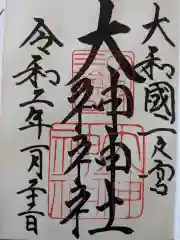 大和國一之宮
大神神社
令和二年一月十一日